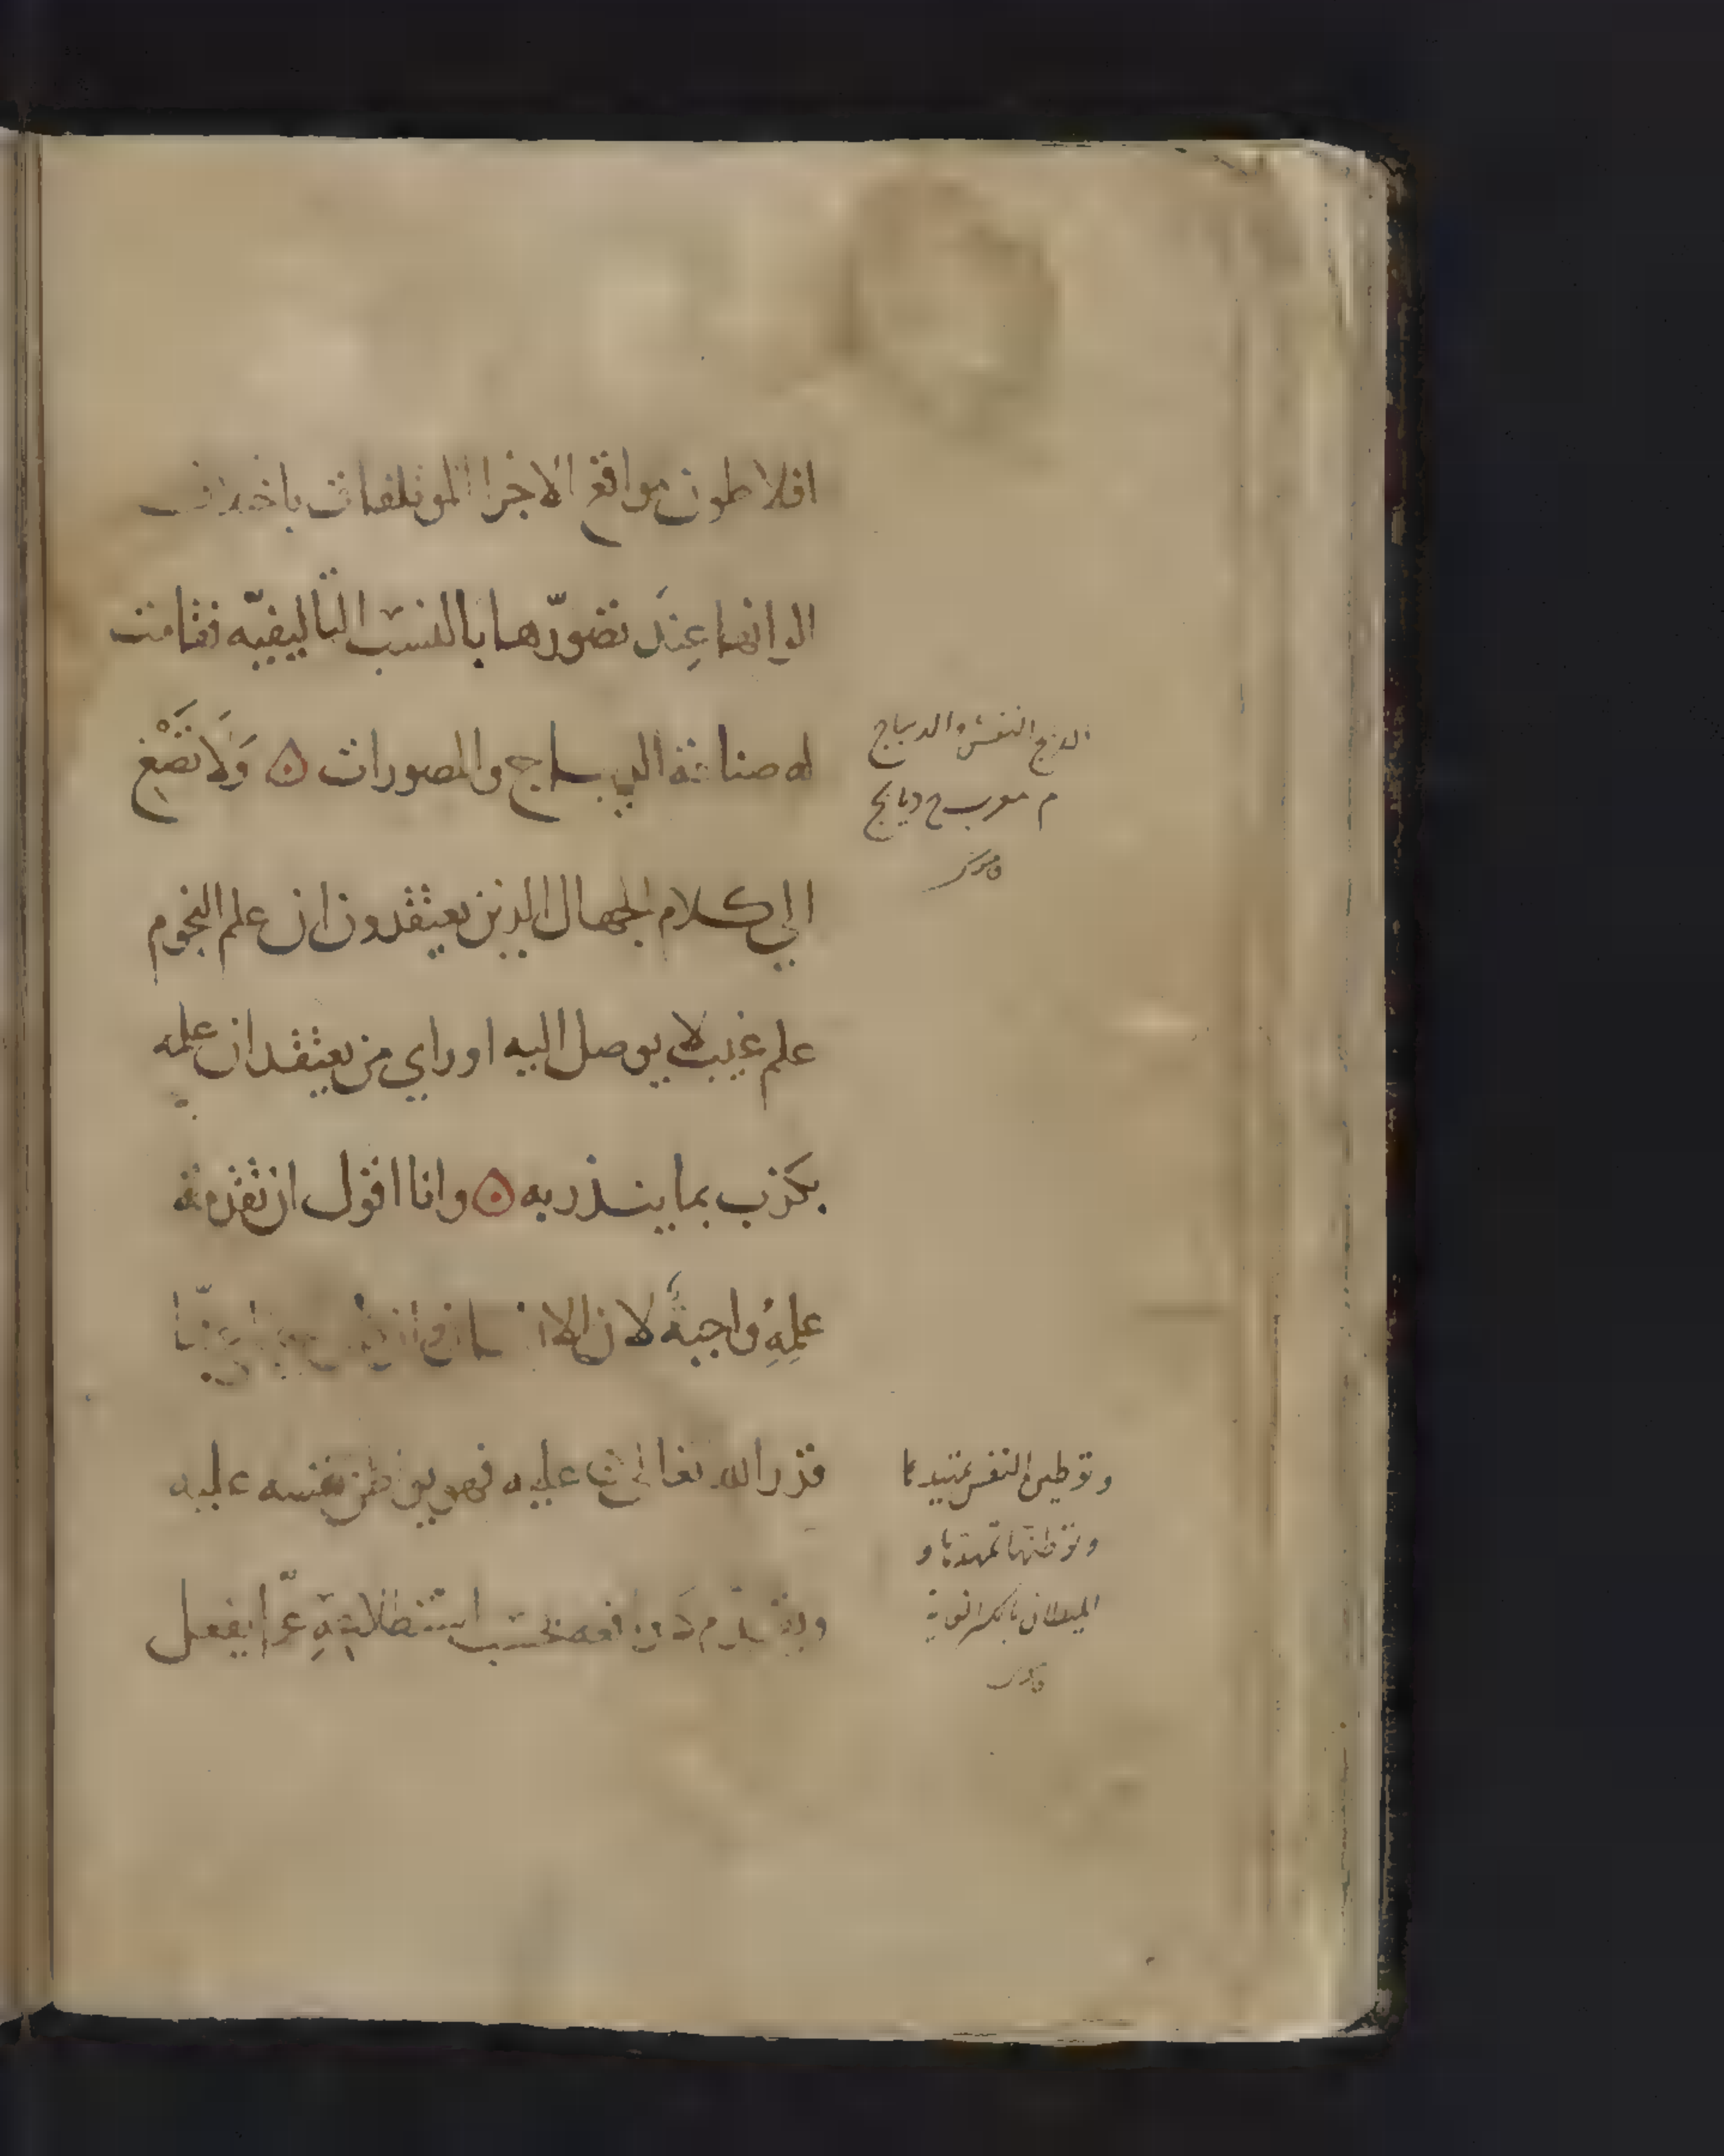 افلاطون مواقع الاجزا الموتلفات باختلاف
الوانها عِندَ تصَوّرها بالنسَب التاليفيّه فقامت
له صناعة الديباج والمصورات ۞ وَلَا تصْغ
الي كلام الجهال الذين يعتقدون ان علم النجوم
علم غيب لا يوصل اليه او راي من يعتقد ان علمه
يكذب بما ينذر به ۞ وانا اقول ان تقدمة
علمِهِ واجبة لان الانسان
قدر الله تعالى عليه فهو يوطن نفسه عليه
بحسَب استطلاعِهِ عمّا يفعل
النقش والديباج
م معرب ج دبابج
قاموس
وتوطين النفس تمهيدها
وتوطنها تمهدها و
الميطان بالكسر الغاية
قاموس